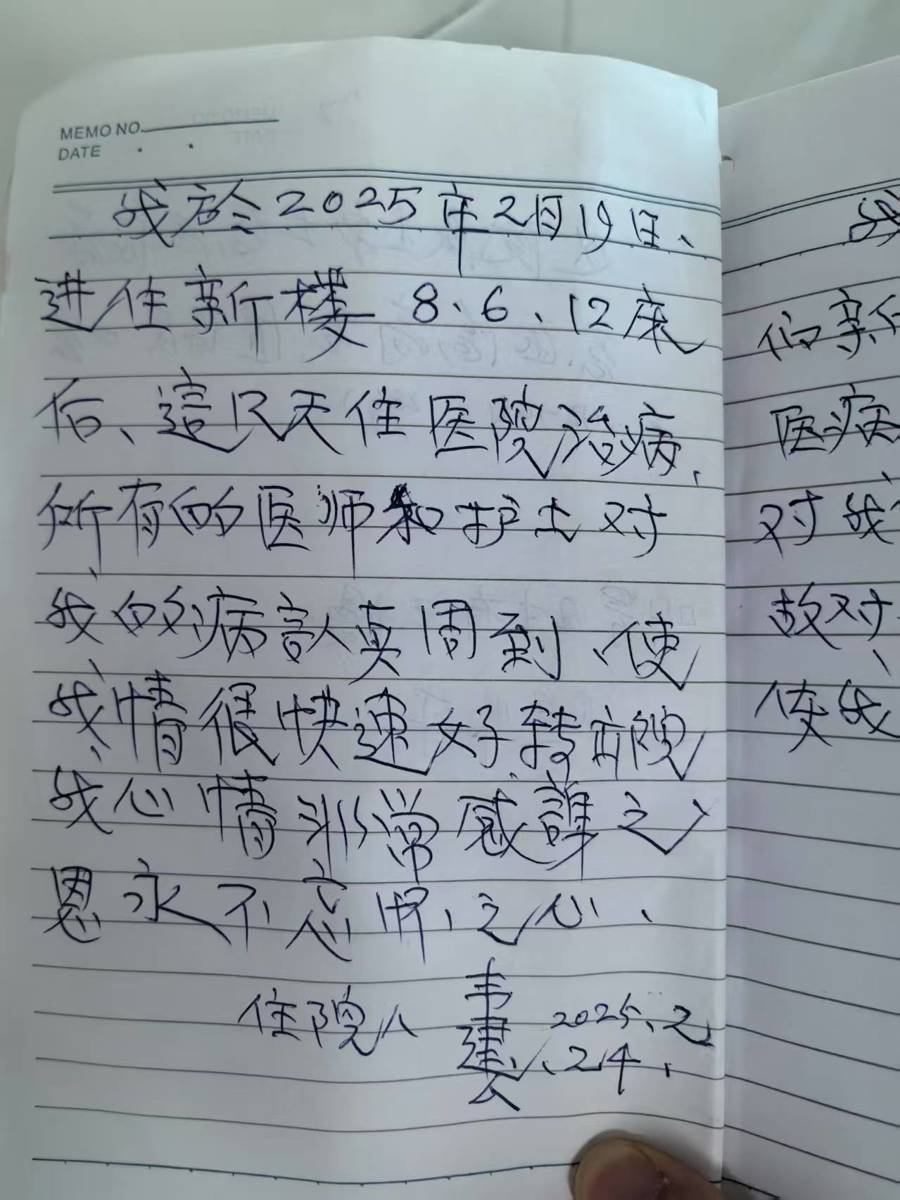 MEMO NO.
DATE . .
我於2025年2月19日、
进住新楼8、6、12床
后、這只天住医院治病,
所有的医师和护士对
我的病認真周到、使
我情很快速好转亦院
我心情非常感謝之
恩永不忘怀之心、
住院人 韦建 2025、2
、24、
我
们新
医病
对我
故对
使我